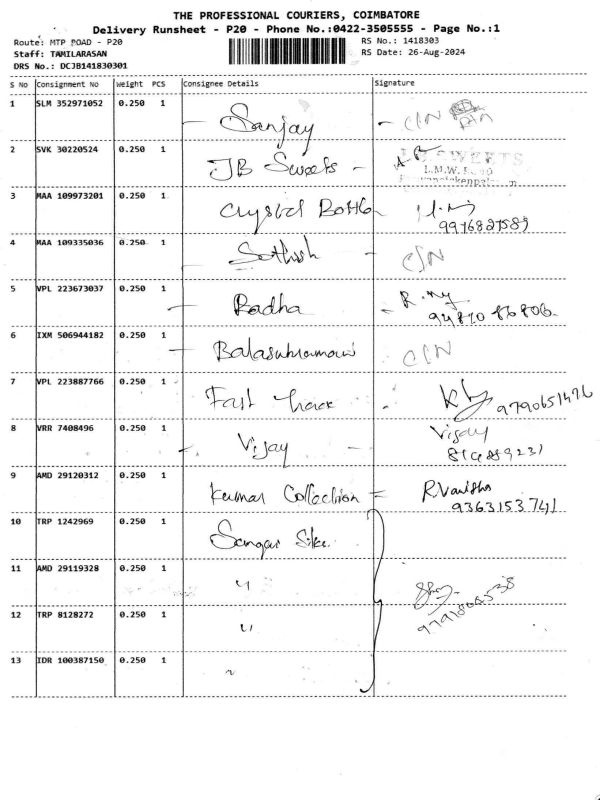 THE PROFESSIONAL COURIERS, COIMBATORE
Delivery Runsheet - P20 - Phone No.:0422-3505555 - Page No.:1
Route: MTP ROAD - P20
RS No.: 1418303
Staff: TAMILARASAN
RS Date: 26-Aug-2024
DRS No.: DCJB141830301
S No Consignment No Weight PCS Consignee Details Signature
1 SLM 352971052 0.250 1 Sanjay
2 SVK 30220524 0.250 1 JB Sweets SWEETS
L.M.W.
3 MAA 109973201 0.250 1 Crystal Bottle
9976827589
4 MAA 109335036 0.250 1 Sathish
5 VPL 223673037 0.250 1 Radha
6 IXM 506944182 0.250 1
7 VPL 223887766 0.250 1 Fast Track
9790651476
8 VRR 7408496 0.250 1 Vijay Vijay
9 AMD 29120312 0.250 1 Kumar Collection =
9363153741
10 TRP 1242969 0.250 1
11 AMD 29119328 0.250 1 "
12 TRP 8128272 0.250 1 "
13 IDR 100387150 0.250 1 "